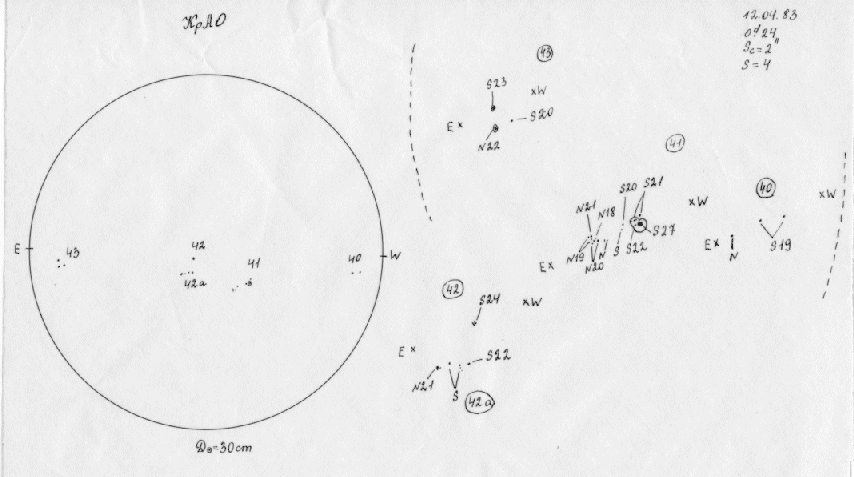 КрАО
12.04.83
09ʰ24
Sc=2"
S=4
E
W
43
42
42a
41
40
D⊙=30cm
43
S23
xW
S20
Ex
N22
41
S20 S21
N21 N18
xW
S27
N19 N20 N S S22
Ex
40
xW
Ex
N
S19
42
S24
xW
Ex
S22
N21
S
42a